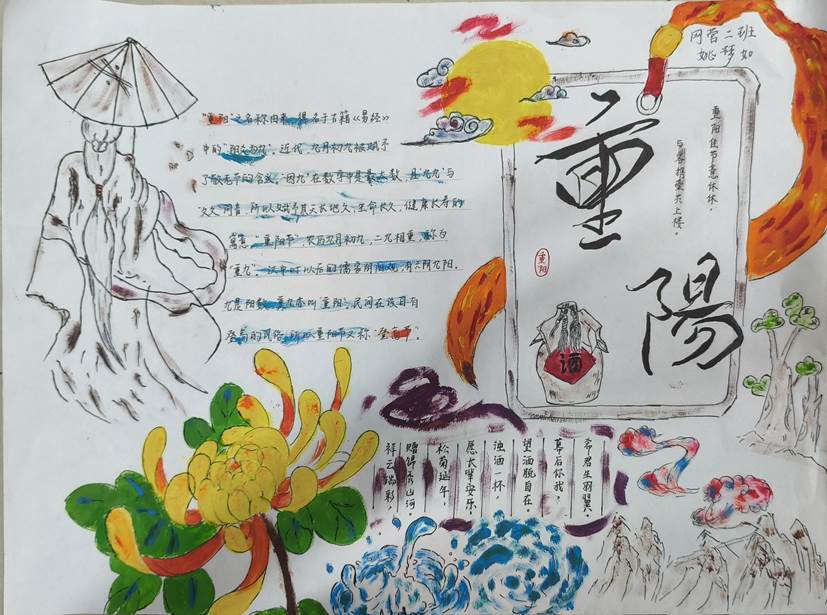 网营二班
姚梦如
"重阳"之名称由来,得名于古籍《易经》
中的"阳爻为九"。近代,九月初九被赋予
了敬老节的含义,因"九"在数字中是最大数,且"九九"与
"久久"同音,所以赋予其天长地久,生命长久,健康长寿的
寓意。"重阳节"农历九月初九,二九相重,称为
"重九"。汉中叶以后的儒家阴阳观,有六阴九阳。
九是阳数,重九亦叫"重阳"。民间在该日有
登高的风俗,所以重阳节又称"登高节"。
重陽
重阳佳节意休休,
与客携壶共上楼。
重阳
酒
希君生羽翼,
幕后你我,
望洒脱自在。
浊酒一杯,
愿大家安乐。
松菊延年,
锦山河
祥云瑞彩